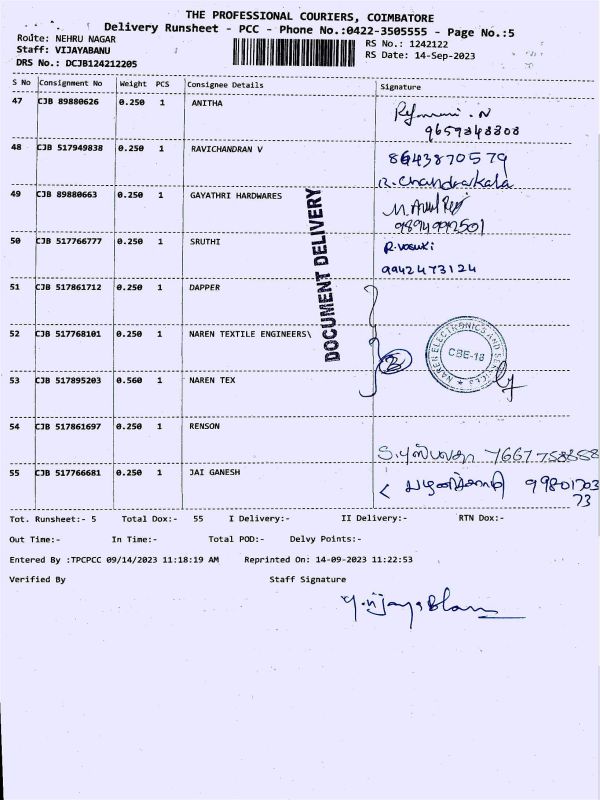 THE PROFESSIONAL COURIERS, COIMBATORE
Delivery Runsheet - PCC - Phone No.:0422-3505555 - Page No.:5
Route: NEHRU NAGAR
RS No.: 1242122
Staff: VIJAYABANU
RS Date: 14-Sep-2023
DRS No.: DCJB124212205
S No Consignment No Weight PCS Consignee Details Signature
47 CJB 89880626 0.250 1 ANITHA
9659848808
48 CJB 517949838 0.250 1 RAVICHANDRAN V 8643870579
R. Chandrakala
49 CJB 89880663 0.250 1 GAYATHRI HARDWARES
50 CJB 517766777 0.250 1 SRUTHI R. vasuki
9942473124
51 CJB 517861712 0.250 1 DAPPER
52 CJB 517768101 0.250 1 NAREN TEXTILE ENGINEERS\
53 CJB 517895203 0.560 1 NAREN TEX
DOCUMENT DELIVERY
NAREN ELECTRONICS AND SERVICES
CBE-18
54 CJB 517861697 0.250 1 RENSON
7667758858
55 CJB 517766681 0.250 1 JAI GANESH
99801703
73
Tot. Runsheet:- 5 Total Dox:- 55 I Delivery:- II Delivery:- RTN Dox:-
Out Time:- In Time:- Total POD:- Delvy Points:-
Entered By :TPCPCC 09/14/2023 11:18:19 AM Reprinted On: 14-09-2023 11:22:53
Verified By Staff Signature